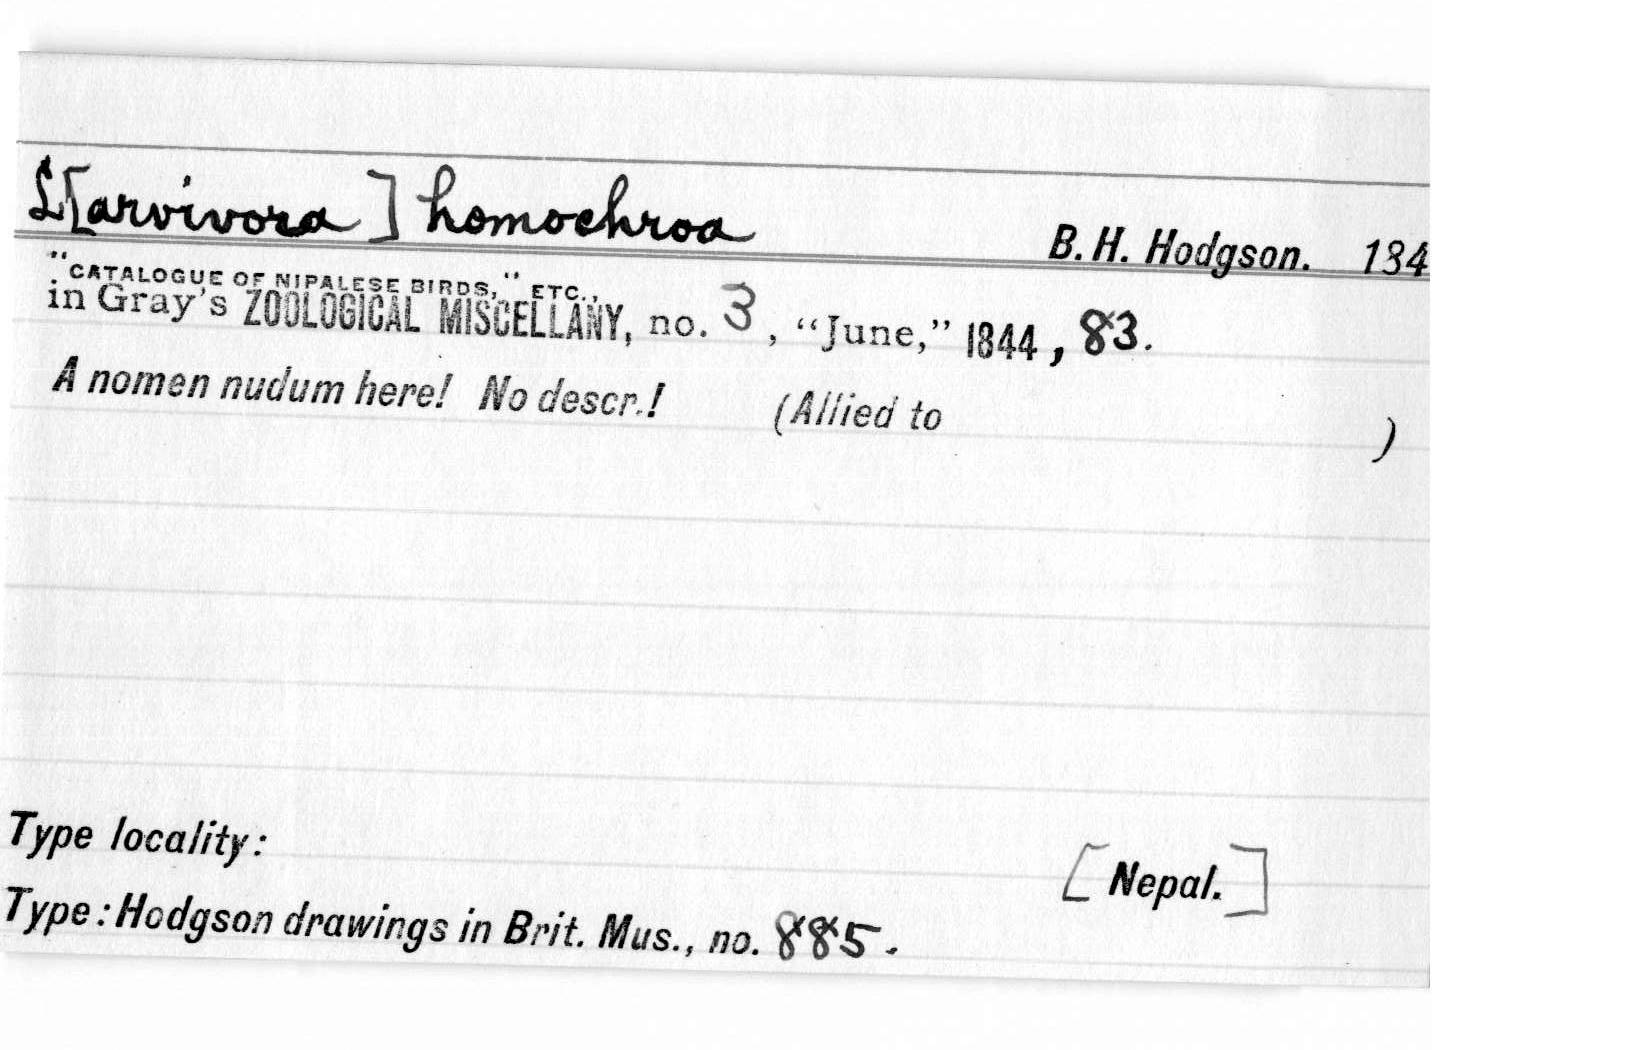 L[arvivora] homochroa
B. H. Hodgson. 184
"CATALOGUE OF NIPALESE BIRDS," ETC.,
in Gray's ZOOLOGICAL MISCELLANY, no. 3, "June," 1844, 83.
A nomen nudum here! No descr.! (Allied to )
Type locality: [Nepal.]
Type: Hodgson drawings in Brit. Mus., no. 885.